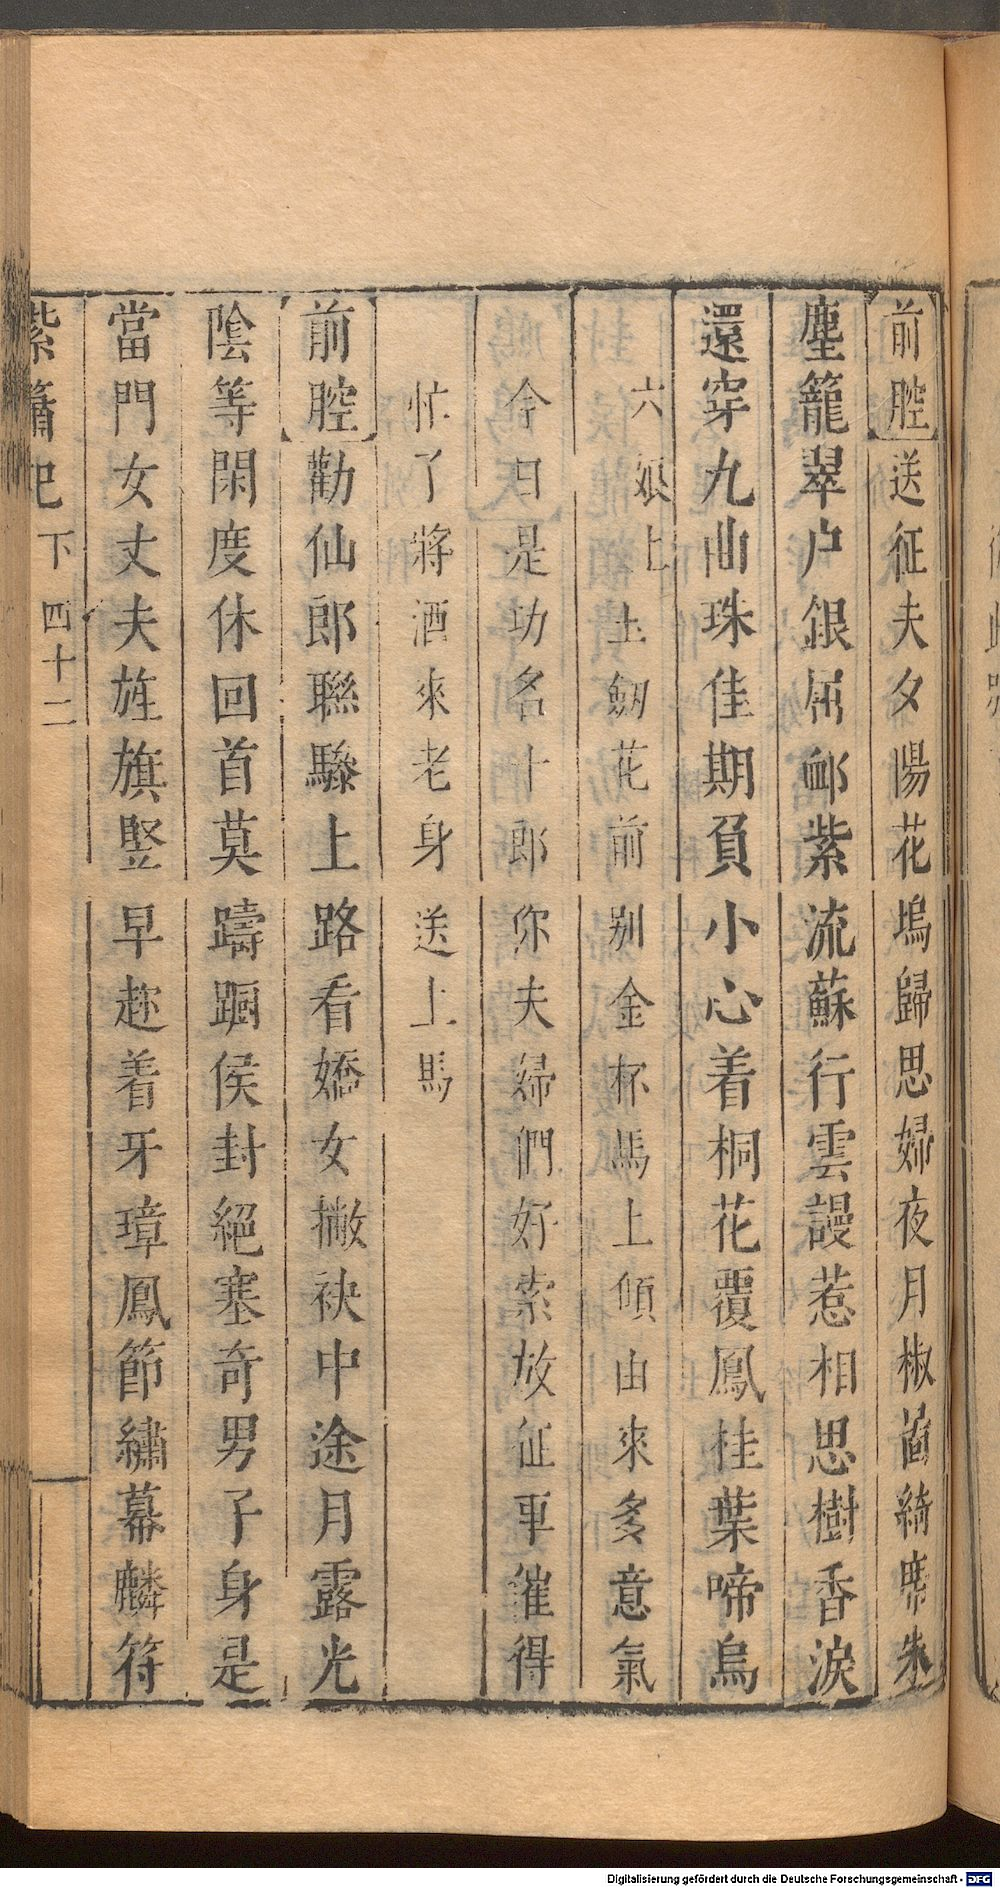 前腔送征夫夕陽花塢歸思婦夜月椒菑綺席朱
塵籠翠户銀屈䘏紫流蘇行雲謾惹相思樹香淚
還穿九曲珠佳期負小心着桐花覆鳳桂葉啼烏
六娘上上劒花前别金杯馬上傾由來多意氣
今日是功名十郎你夫婦們好索放征車催得
忙了將酒來老身送上馬
前腔勸仙郎聯驂上路看嬌女撇袂中途月露光
陰等閑度休回首莫躊躕侯封絕塞奇男子身是
當門女丈夫旌旗竪早趂着牙璋鳳節繡幕麟符
紫簫記 下 四十二
Digitalisierung gefördert durch die Deutsche Forschungsgemeinschaft - DFG